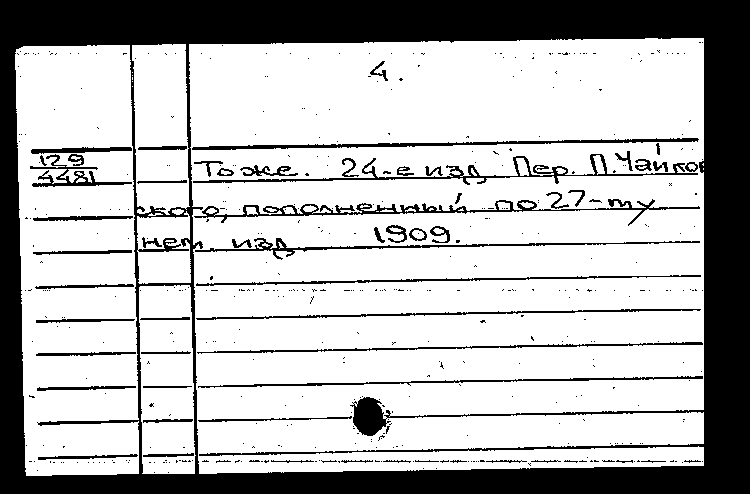 4.
129
4481
То же. 24-е изд. Пер. П. Чайков
ского, пополненный по 27-му
нем. изд. 1909.